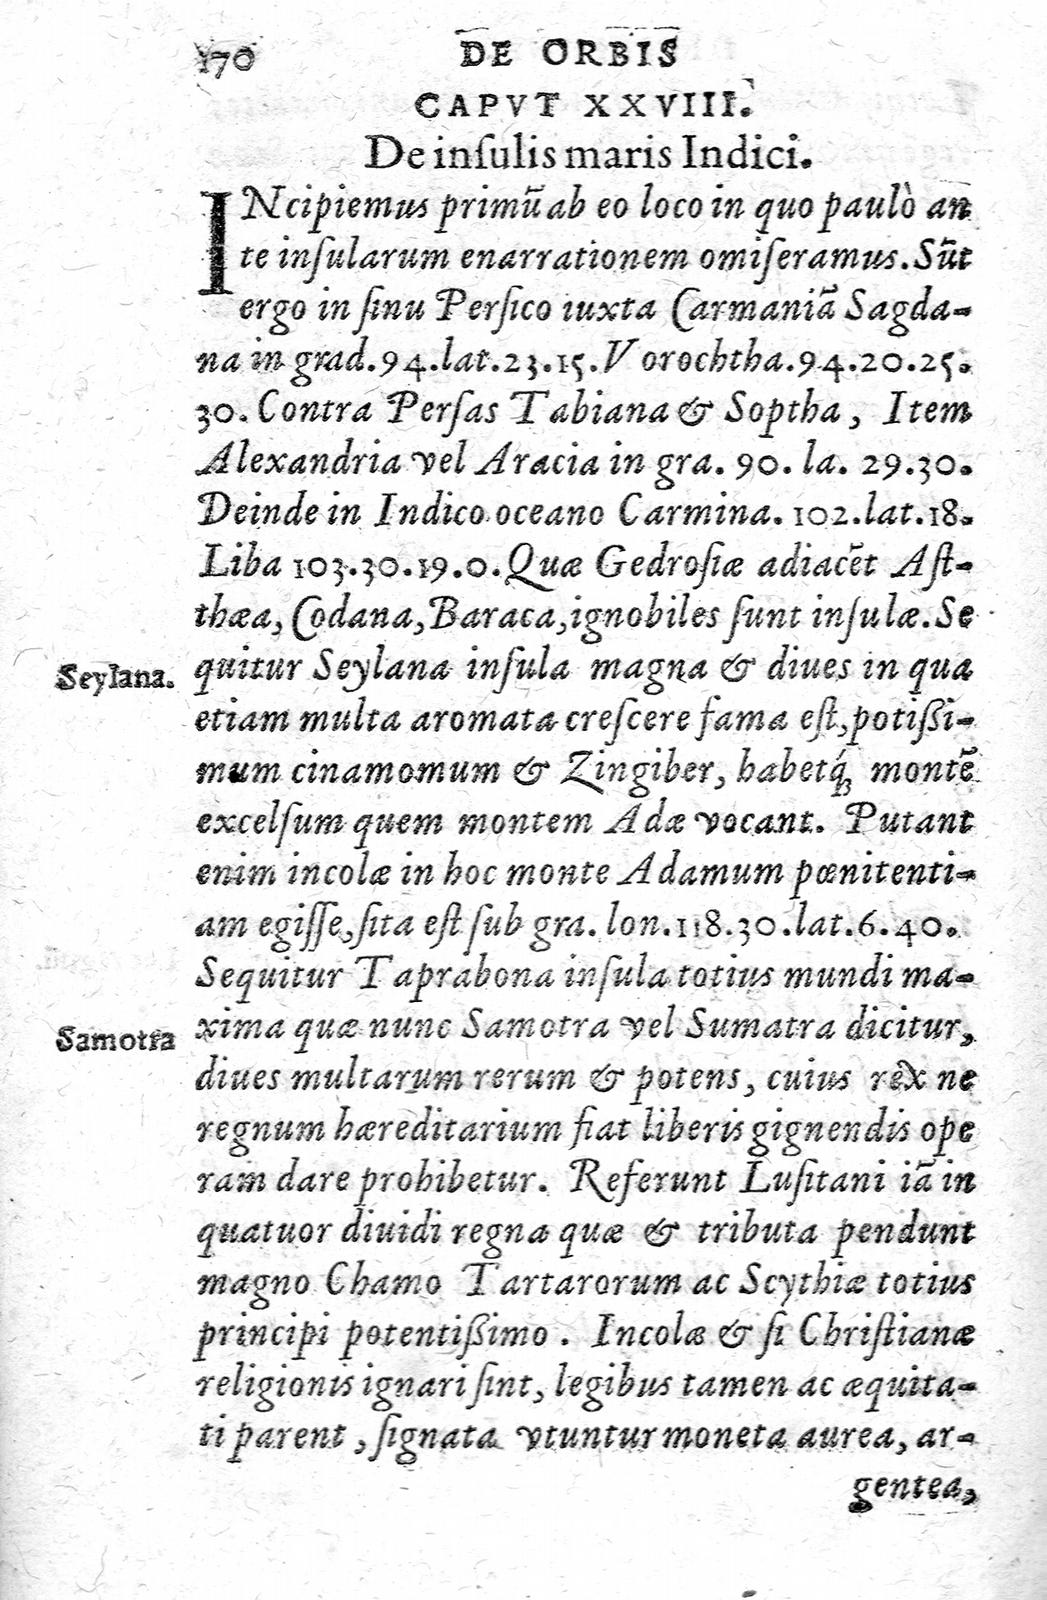 170 DE ORBIS
CAPVT XXVIII.
De inſulis maris Indici.
INcipiemus primũ ab eo loco in quo paulò an
te inſularum enarrationem omiſeramus. Sũt
ergo in ſinu Perſico iuxta Carmaniã Sagda-
na in grad. 94. lat. 23. 15. Vorochtha. 94. 20. 25.
30. Contra Perſas Tabiana & Soptha, Item
Alexandria vel Aracia in gra. 90. la. 29. 30.
Deinde in Indico oceano Carmina. 102. lat. 18.
Liba 103. 30. 19. 0. Quæ Gedroſiæ adiacẽt Aſt-
thæa, Codana, Baraca, ignobiles ſunt inſulæ. Se
Seylana.
quitur Seylana inſula magna & diues in qua
etiam multa aromata creſcere fama eſt, potißi-
mum cinamomum & Zingiber, habetq́ꝫ montẽ
excelſum quem montem Adæ vocant. Putant
enim incolæ in hoc monte Adamum pœnitenti-
am egiſſe, ſita eſt ſub gra. lon. 118. 30. lat. 6. 40.
Sequitur Taprabona inſula totius mundi ma-
Samotra
xima quæ nunc Samotra vel Sumatra dicitur,
diues multarum rerum & potens, cuius rex ne
regnum hæreditarium fiat liberis gignendis ope
ram dare prohibetur. Referunt Luſitani iã in
quatuor diuidi regna quæ & tributa pendunt
magno Chamo Tartarorum ac Scythiæ totius
principi potentißimo. Incolæ & ſi Chriſtianæ
religionis ignari ſint, legibus tamen ac æquita-
ti parent, ſignata vtuntur moneta aurea, ar-
gentea,